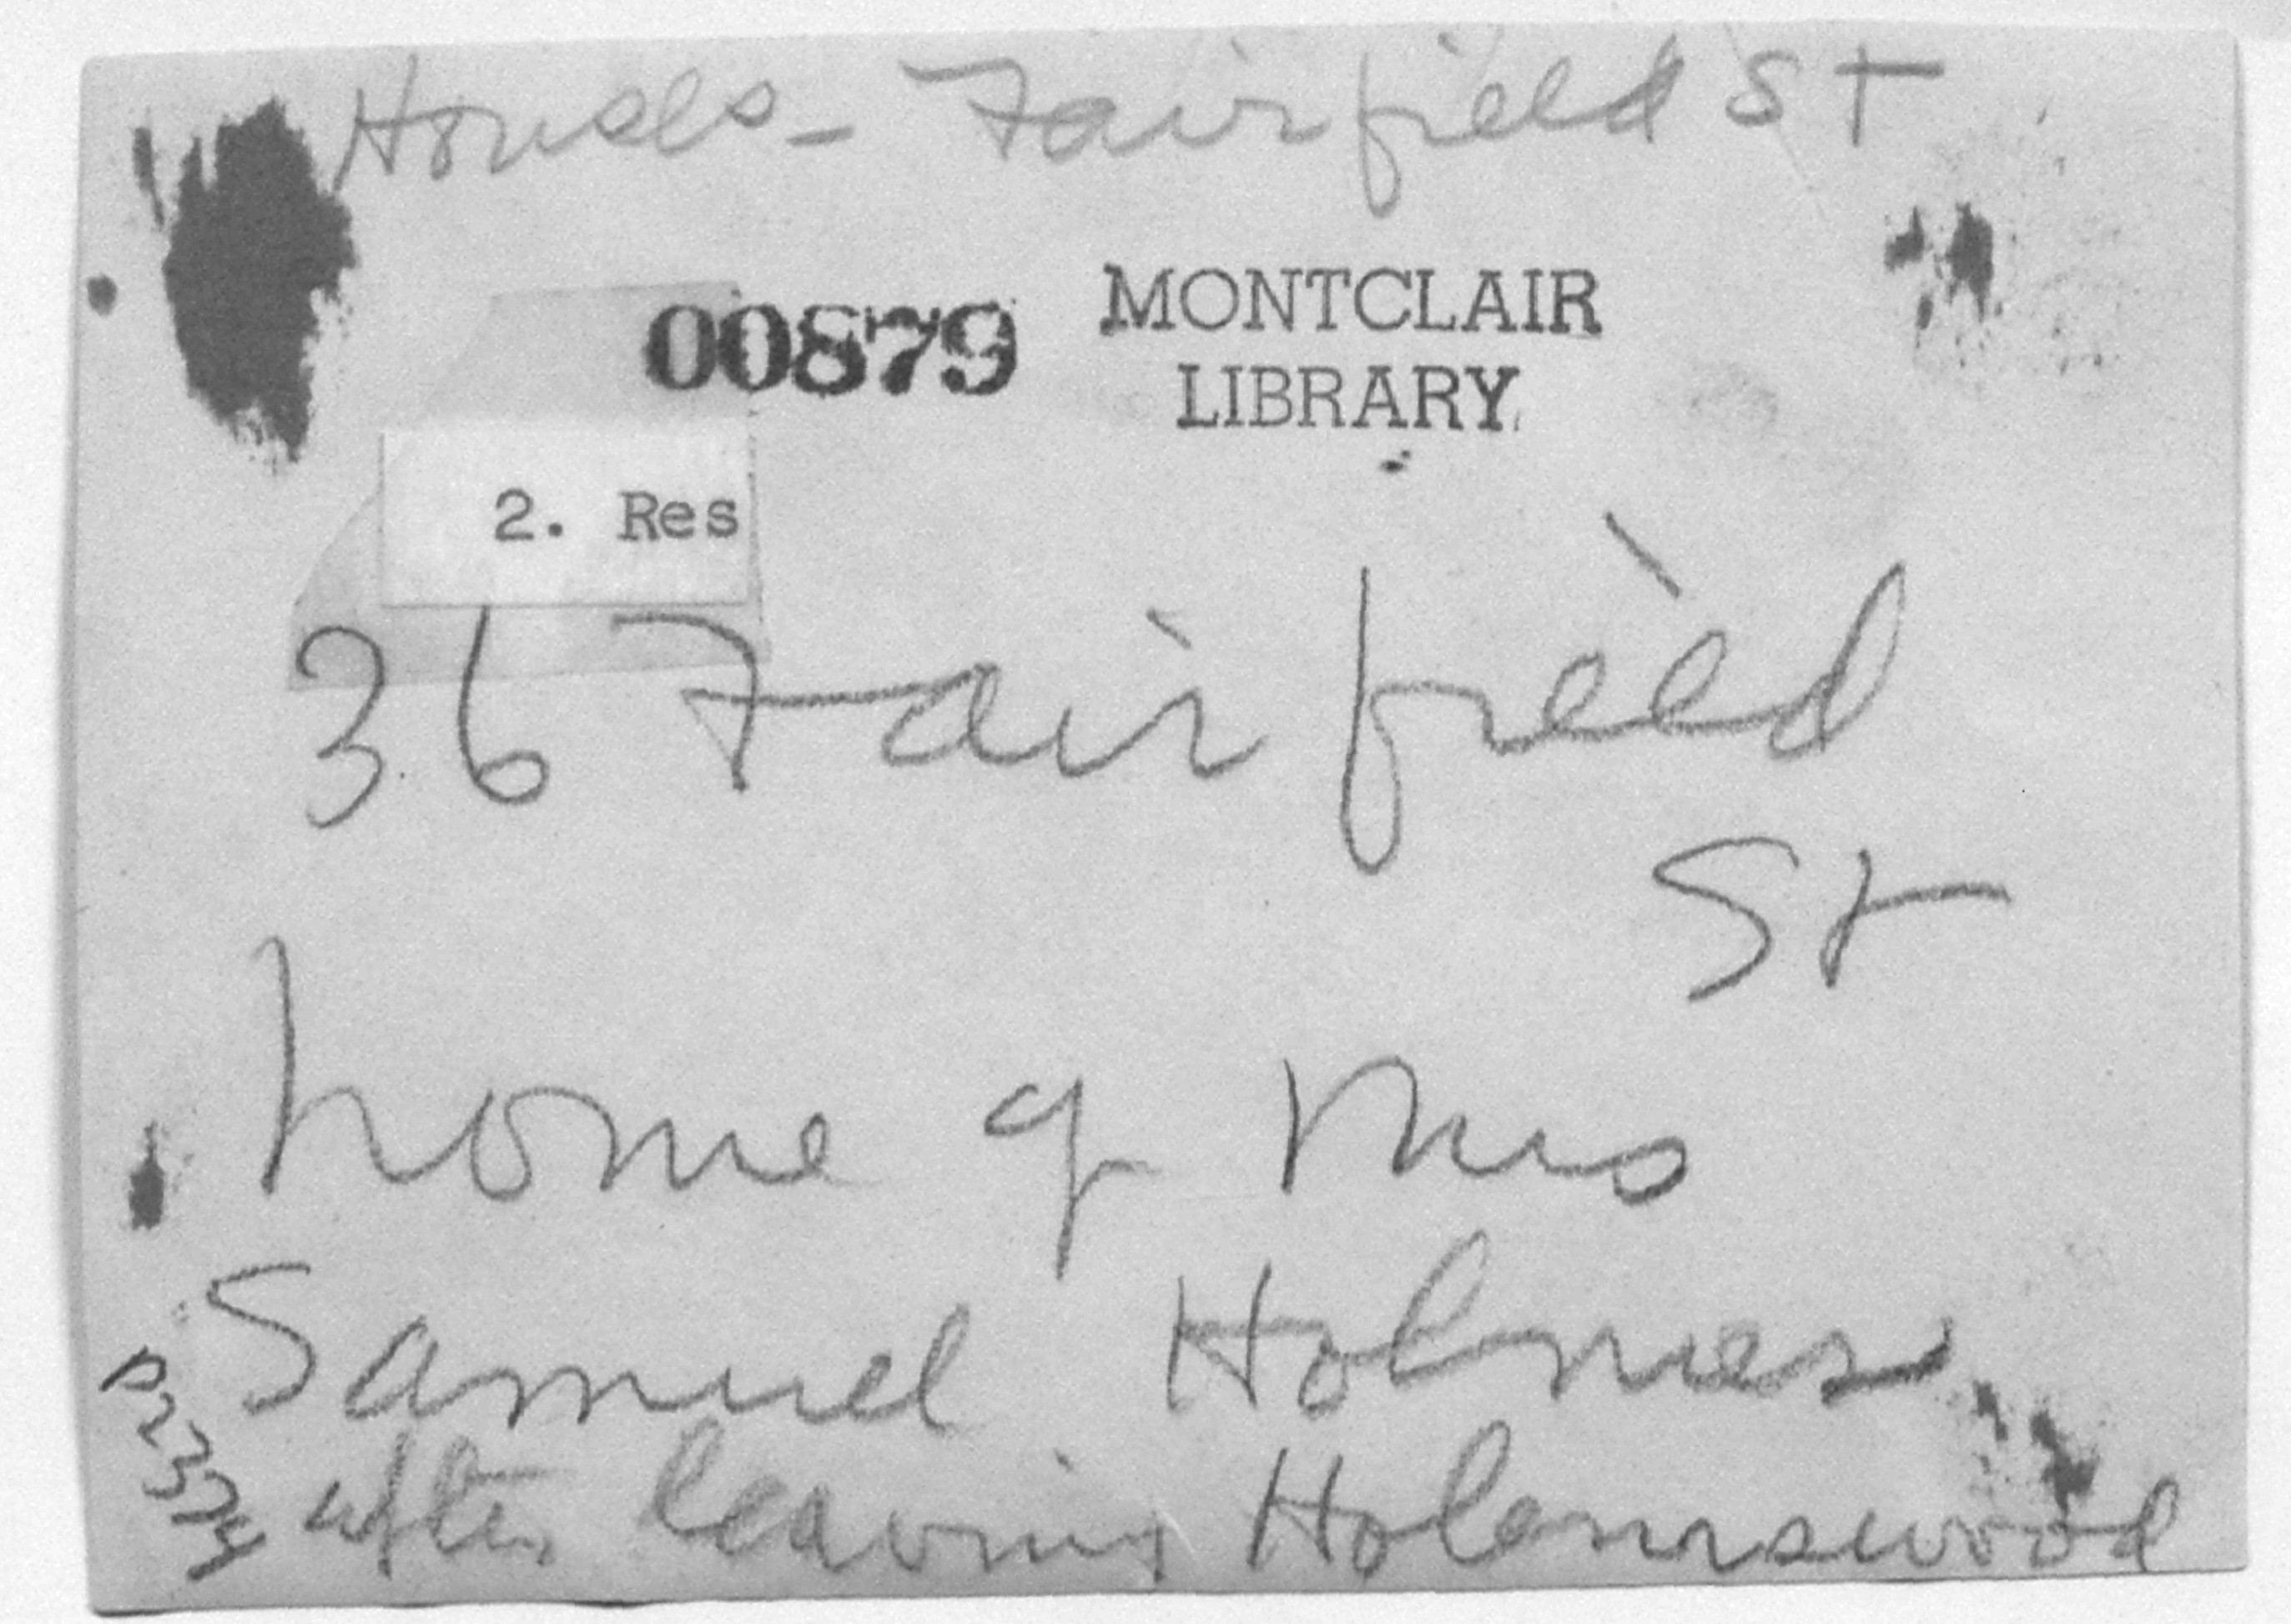 Houses - Fairfield St
00879 MONTCLAIR
LIBRARY
2. Res
36 Fairfield
St
home of Mrs
Samuel Holmes
after leaving Holmeswood